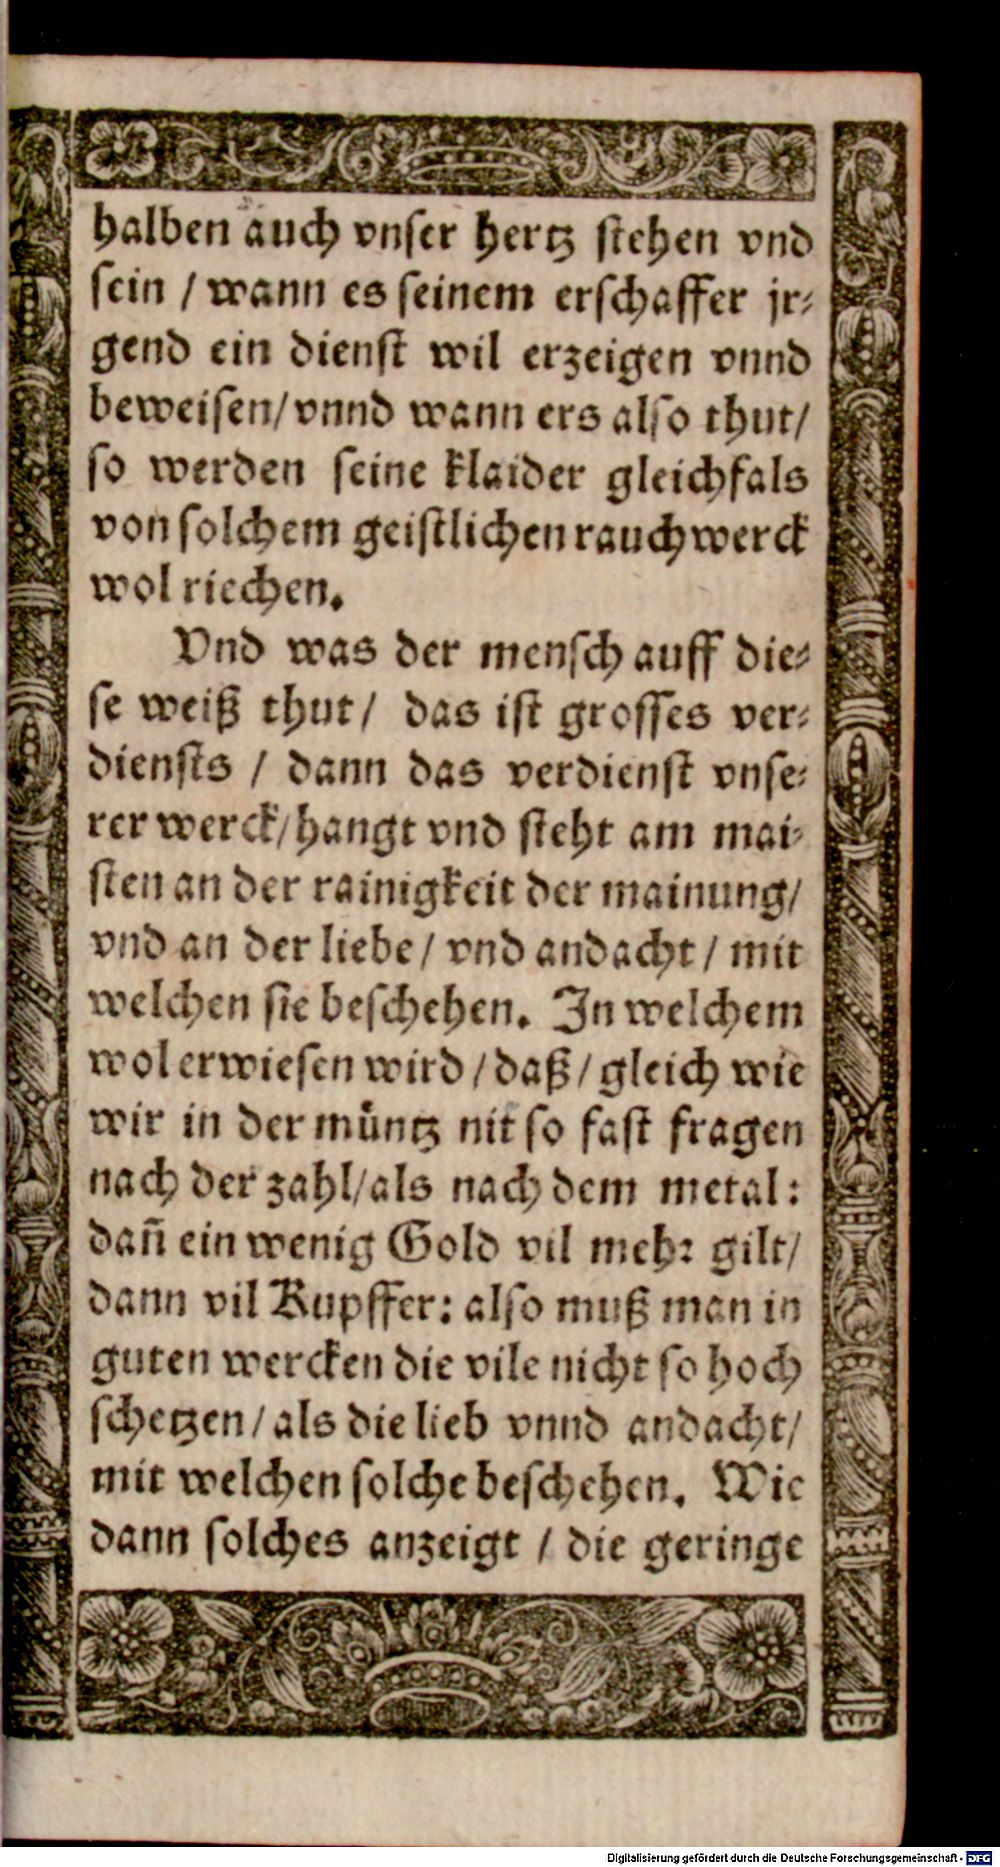 halben auch vnser hertz stehen vnd
sein / wann es seinem erschaffer jr⸗
gend ein dienst wil erzeigen vnnd
beweisen/ vnnd wann ers also thut/
so werden seine klaider gleichfals
von solchem geistlichen rauchwerck
wol riechen.
Vnd was der mensch auff die⸗
se weiß thut / das ist grosses ver⸗
diensts / dann das verdienst vnse⸗
rer werck/ hangt vnd steht am mai⸗
sten an der rainigkeit der mainung/
vnd an der liebe / vnd andacht / mit
welchen sie beschehen. In welchem
wol erwiesen wird / daß / gleich wie
wir in der müntz nit so fast fragen
nach der zahl/ als nach dem metal:
dañ ein wenig Gold vil mehr gilt/
dann vil Kupffer: also muß man in
guten wercken die vile nicht so hoch
schetzen / als die lieb vnnd andacht/
mit welchen solche beschehen. Wie
dann solches anzeigt / die geringe
Digitalisierung gefördert durch die Deutsche Forschungsgemeinschaft - DFG